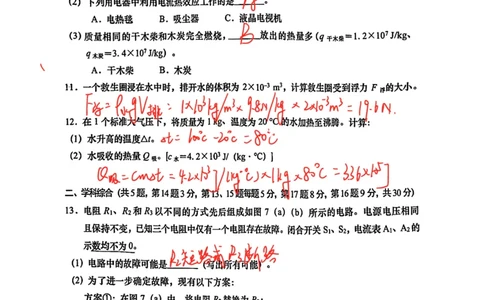 (2) 下列用电器中利用电流热效应工作的是
A. 电热毯 B. 吸尘器 C. 液晶电视机
(3) 质量相同的干木柴和木炭完全燃烧, B 放出的热量多 (q干木柴=1.2×10⁷J/kg、
q木炭=3.4×10⁷J/kg) 。
A. 干木柴 B. 木炭
11. 一个救生圈浸在水中时, 排开水的体积为 2×10⁻³ m³, 计算救生圈受到浮力 F浮的大小。
F浮=ρ水gV排=1×10³kg/m³×9.8N/kg×2×10⁻³m³=19.6N.
12. 在 1 个标准大气压下, 将质量为 1 kg、温度为 20 ℃的水加热至沸腾。计算:
(1) 水升高的温度Δt。 Δt=100℃-20℃=80℃
(2) 水吸收的热量 Q吸。[c水=4.2×10³ J/ (kg·℃) ]
Q吸=cmΔt=4.2×10³J/(kg·℃)×1kg×80℃=3.36×10⁵J
二、学科综合 (共 5 题, 第 14 题 3 分, 第 13、15 题每题 5 分, 第 17 题 8 分, 第 16 题 9 分, 共 30 分)
13. 电阻 R₁、R₂ 和 R₃ 以不同的方式先后组成如图 7 (a) (b) 所示的电路。电源电压相同
且保持不变, 已知三个电阻中仅有一个电阻存在故障。闭合开关 S₁、S₂, 电流表 A₁、A₂ 的
示数均不为 0。
(1) 电路中的故障可能是 R₂短路或R₃断路 (写出所有可能) 。
(2) 为了进一步确定故障, 现有以下方案:
方案①: 在图 7 (a) 中, 将电阻